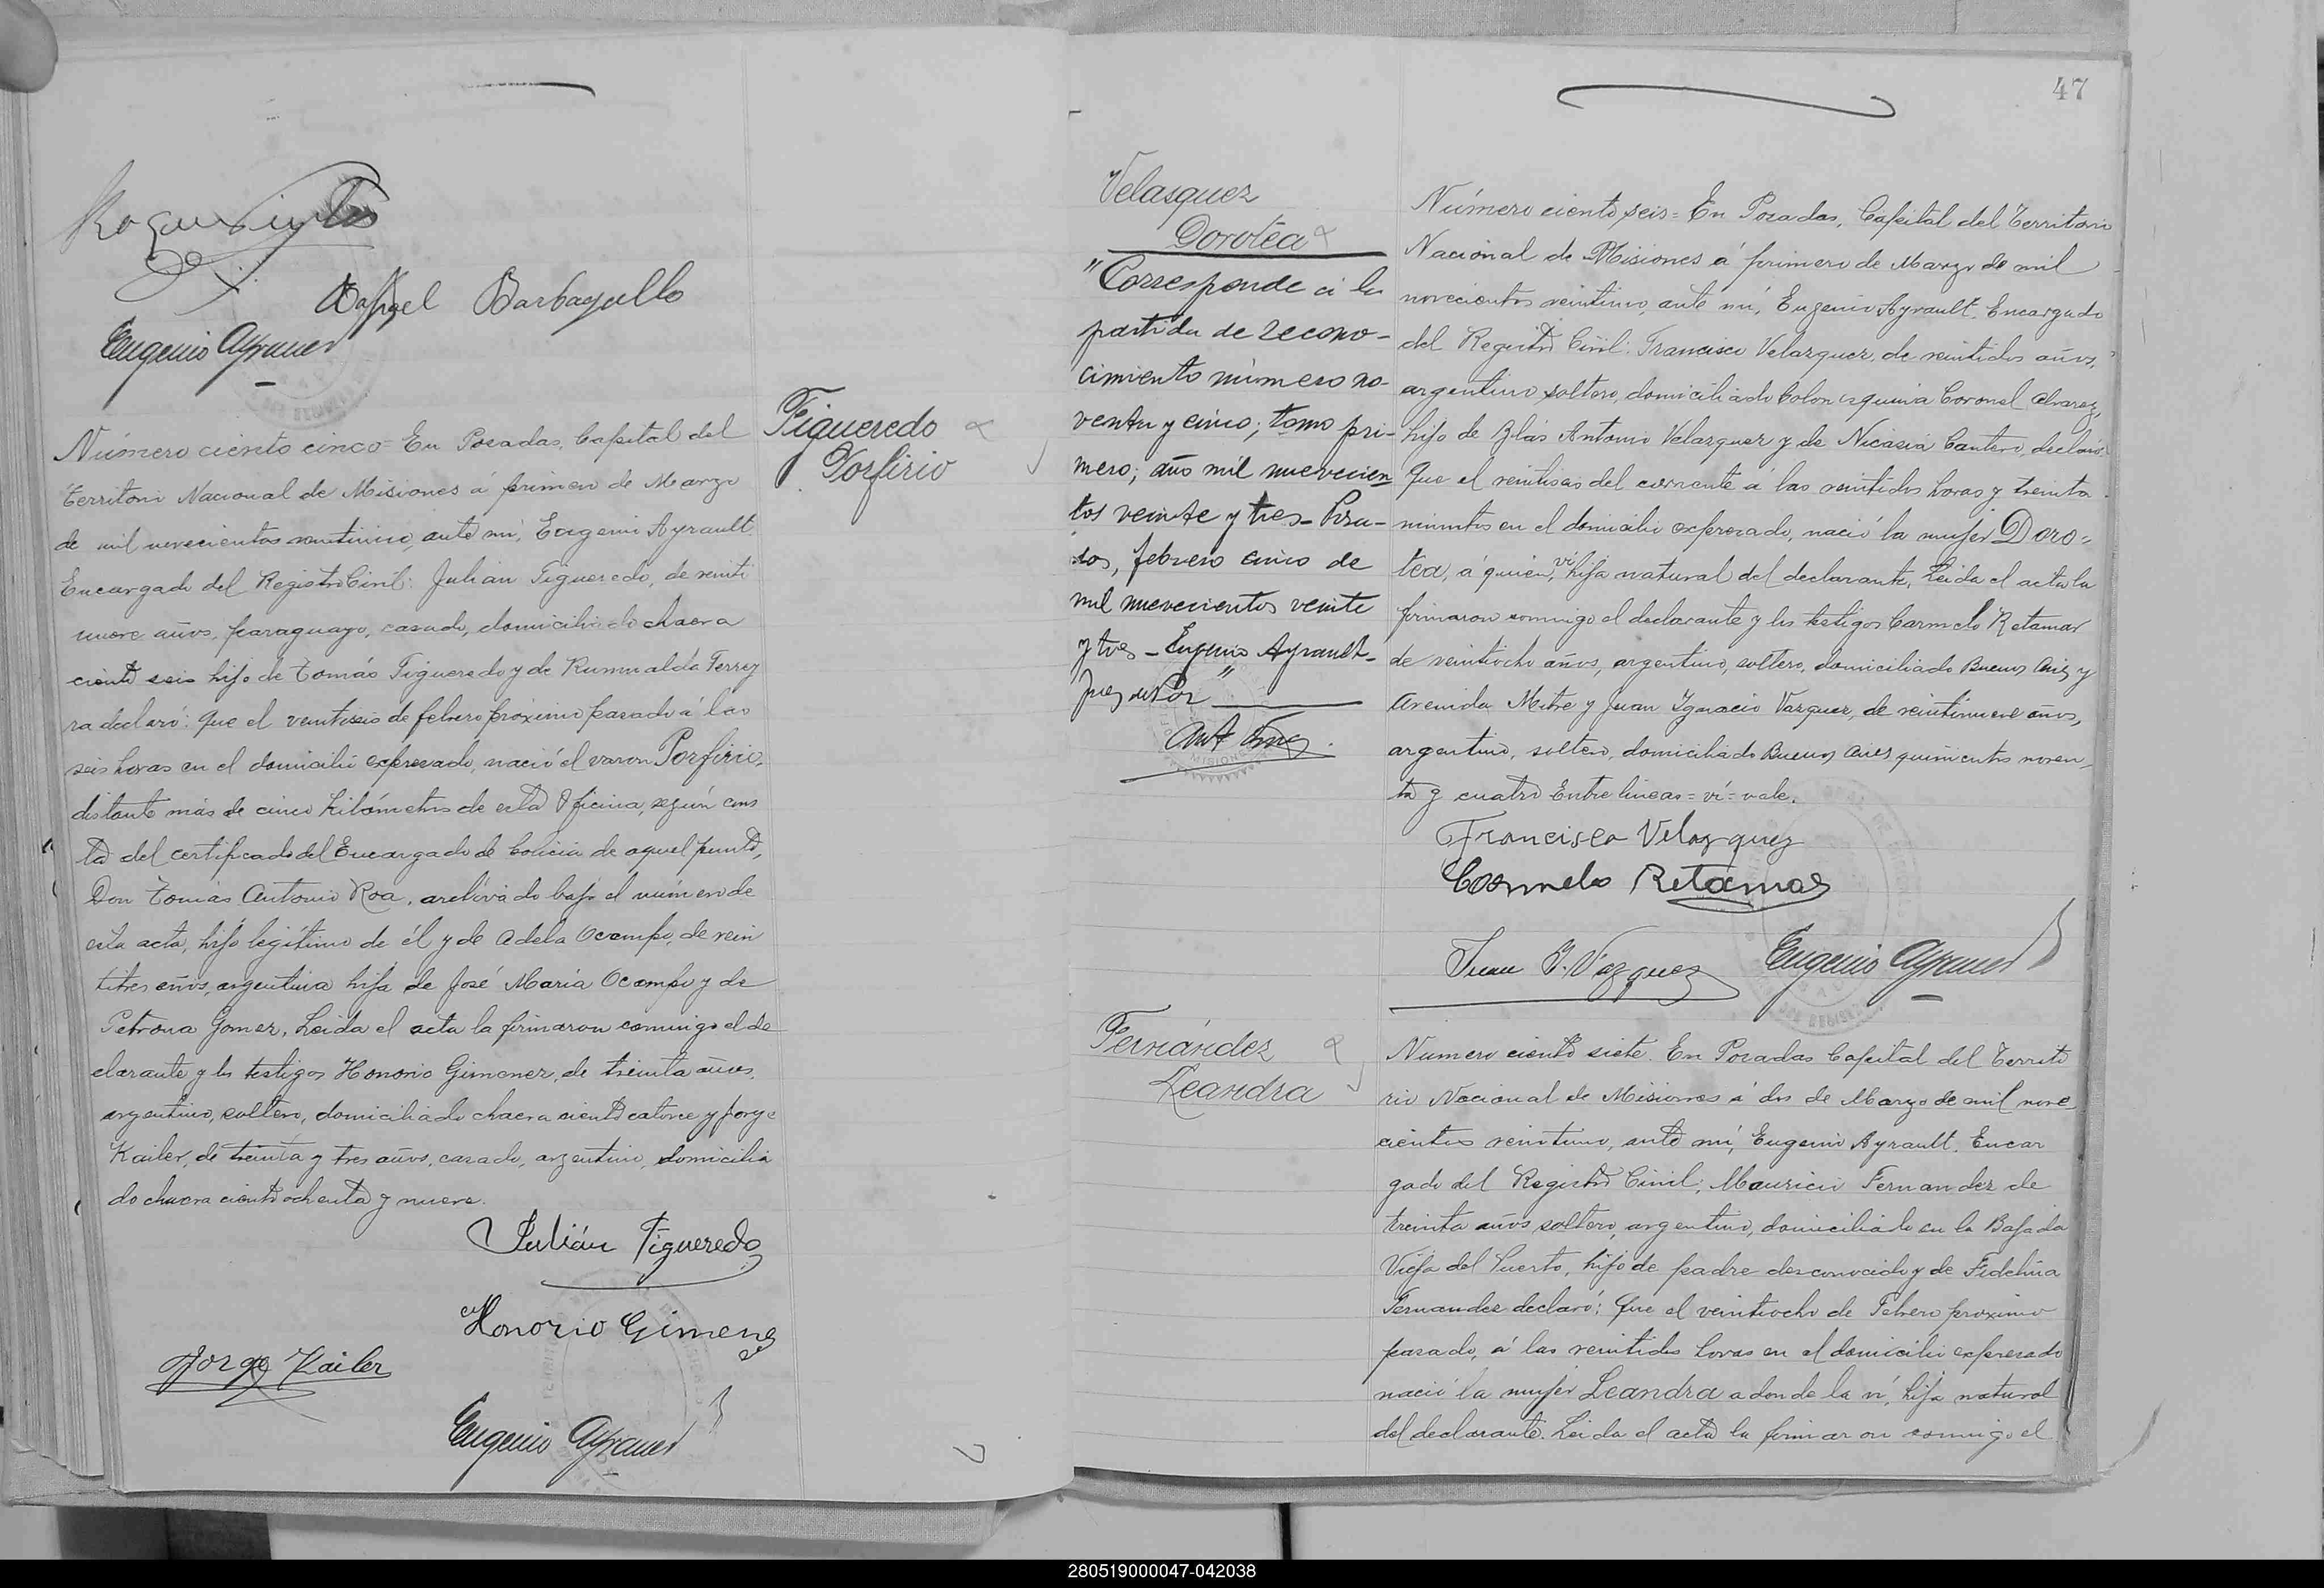 Rafael Barbagallo
Eugenio Ayrault
Figueredo
Porfirio
Número ciento cinco = En Posadas, Capital del
Territorio Nacional de Misiones á primero de Marzo
de mil novecientos veintiuno, ante mi, Eugenio Ayrault.
Encargado del Registro Civil: Julian Figueredo, de veinti
nueve años, paraguayo, casado, domiciliado chacra
ciento seis hijo de Tomás Figueredo y de Rumualda Ferrey
ra declaró: Que el veintiseis de febrero próximo pasado á las
seis horas en el domicilio expresado, nació el varon Porfirio,
distante más de cinco kilómetros de esta Oficina, según cons
ta del certificado del Encargado de Policia de aquel punto,
Don Tomás Antonio Roa, archivado bajo el número de
esta acta, hijo legítimo de él y de Adela Ocampo, de vein
titres años, argentina hija de José María Ocampo y de
Petrona Gomez, Leida el acta la firmaron conmigo el de
clarante y los testigos Honorio Gimenez, de treinta años,
argentino, soltero, domiciliado chacra ciento catorce y Jorge
Kailer, de treinta y tres años, casado, argentino, domicilia
do chacra ciento ochenta y nueve.
Julián Figueredo
Honorio Gimenez
Jorge Kailer
Eugenio Ayrault
47
Velasquez
Dorotea
"Corresponde a la
partida de recono-
cimiento número no-
venta y cinco; tomo pri-
mero; año mil nuevecien
tos veinte y tres - Posa-
das, febrero cinco de
mil nuevecientos veinte
y tres - Eugenio Ayrault -
Juez de Paz"
Número ciento seis = En Posadas, Capital del Territorio
Nacional de Misiones á primero de Marzo de mil
novecientos veintiuno, ante mi, Eugenio Ayrault. Encargado
del Registro Civil: Francisco Velazquez, de veintidos años,
argentino soltero, domiciliado Colon esquina Coronel Alvarez,
hijo de Blás Antonio Velazquez y de Nicasia Cantero, declaró:
Que el veintiseis del corriente á las veintidos horas y treinta
minutos en el domicilio expresado, nació la mujer Doro=
tea, á quien, ví hija natural del declarante, Leida el acta la
firmaron conmigo el declarante y los testigos Carmelo Retamar
de veintiocho años, argentino, soltero, domiciliado Buenos Aires y
Avenida Mitre y Juan Ygnacio Vazquez, de veintinueve años,
argentino, soltero, domiciliado Buenos Aires quinientos noven
ta y cuatro Entre lineas = ví = vale.
Francisco Velazquez
Carmelo Retamar
Juan I. Vazquez
Eugenio Ayrault
Fernández
Leandra
Numero ciento siete. En Posadas Capital del Territo
rio Nacional de Misiones á dos de Marzo de mil nove
cientos veintiuno, ante mi, Eugenio Ayrault. Encar
gado del Registro Civil; Mauricio Fernandez de
treinta años soltero, argentino, domiciliado en la Bajada
Vieja del Puerto, hijo de padre desconocido y de Fidelina
Fernandez declaró: Que el veintiocho de Febrero proximo
pasado, á las veintidos horas en el domicilio expresado
nació la mujer Leandra a donde la ví, hija natural
del declarante. Leida el acta la firmaron conmigo el
280519000047-042038